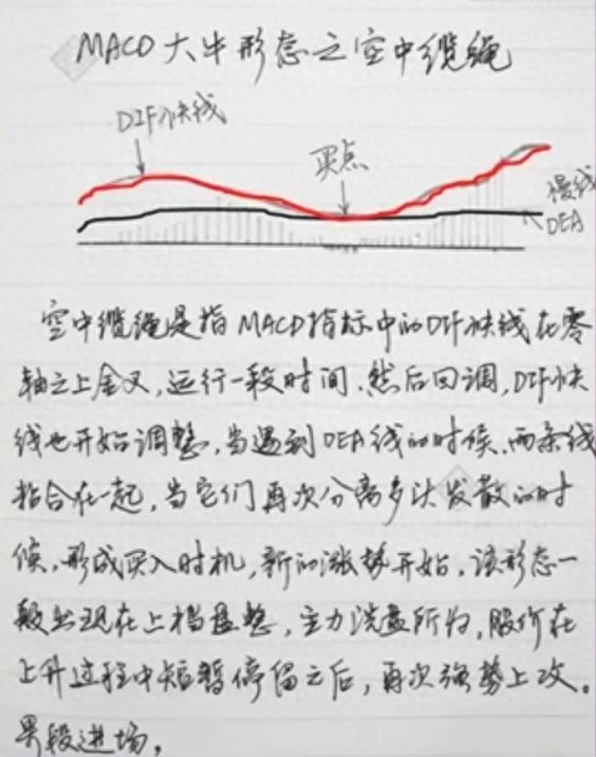 MACD大牛形态之空中缆绳
DIF快线
买点
慢线
DEA
空中缆绳是指MACD指标中的DIF快线在零
轴之上金叉,运行一段时间.然后回调,DIF快
线也开始调整,当遇到DEA线的时候.两条线
粘合在一起,当它们再次分离多头发散的时
候,形成买入时机,新的涨势开始.该形态一
般出现在上档盘整,主力洗盘所为,股价在
上升过程中短暂停留之后,再次强势上攻。
果段进场,